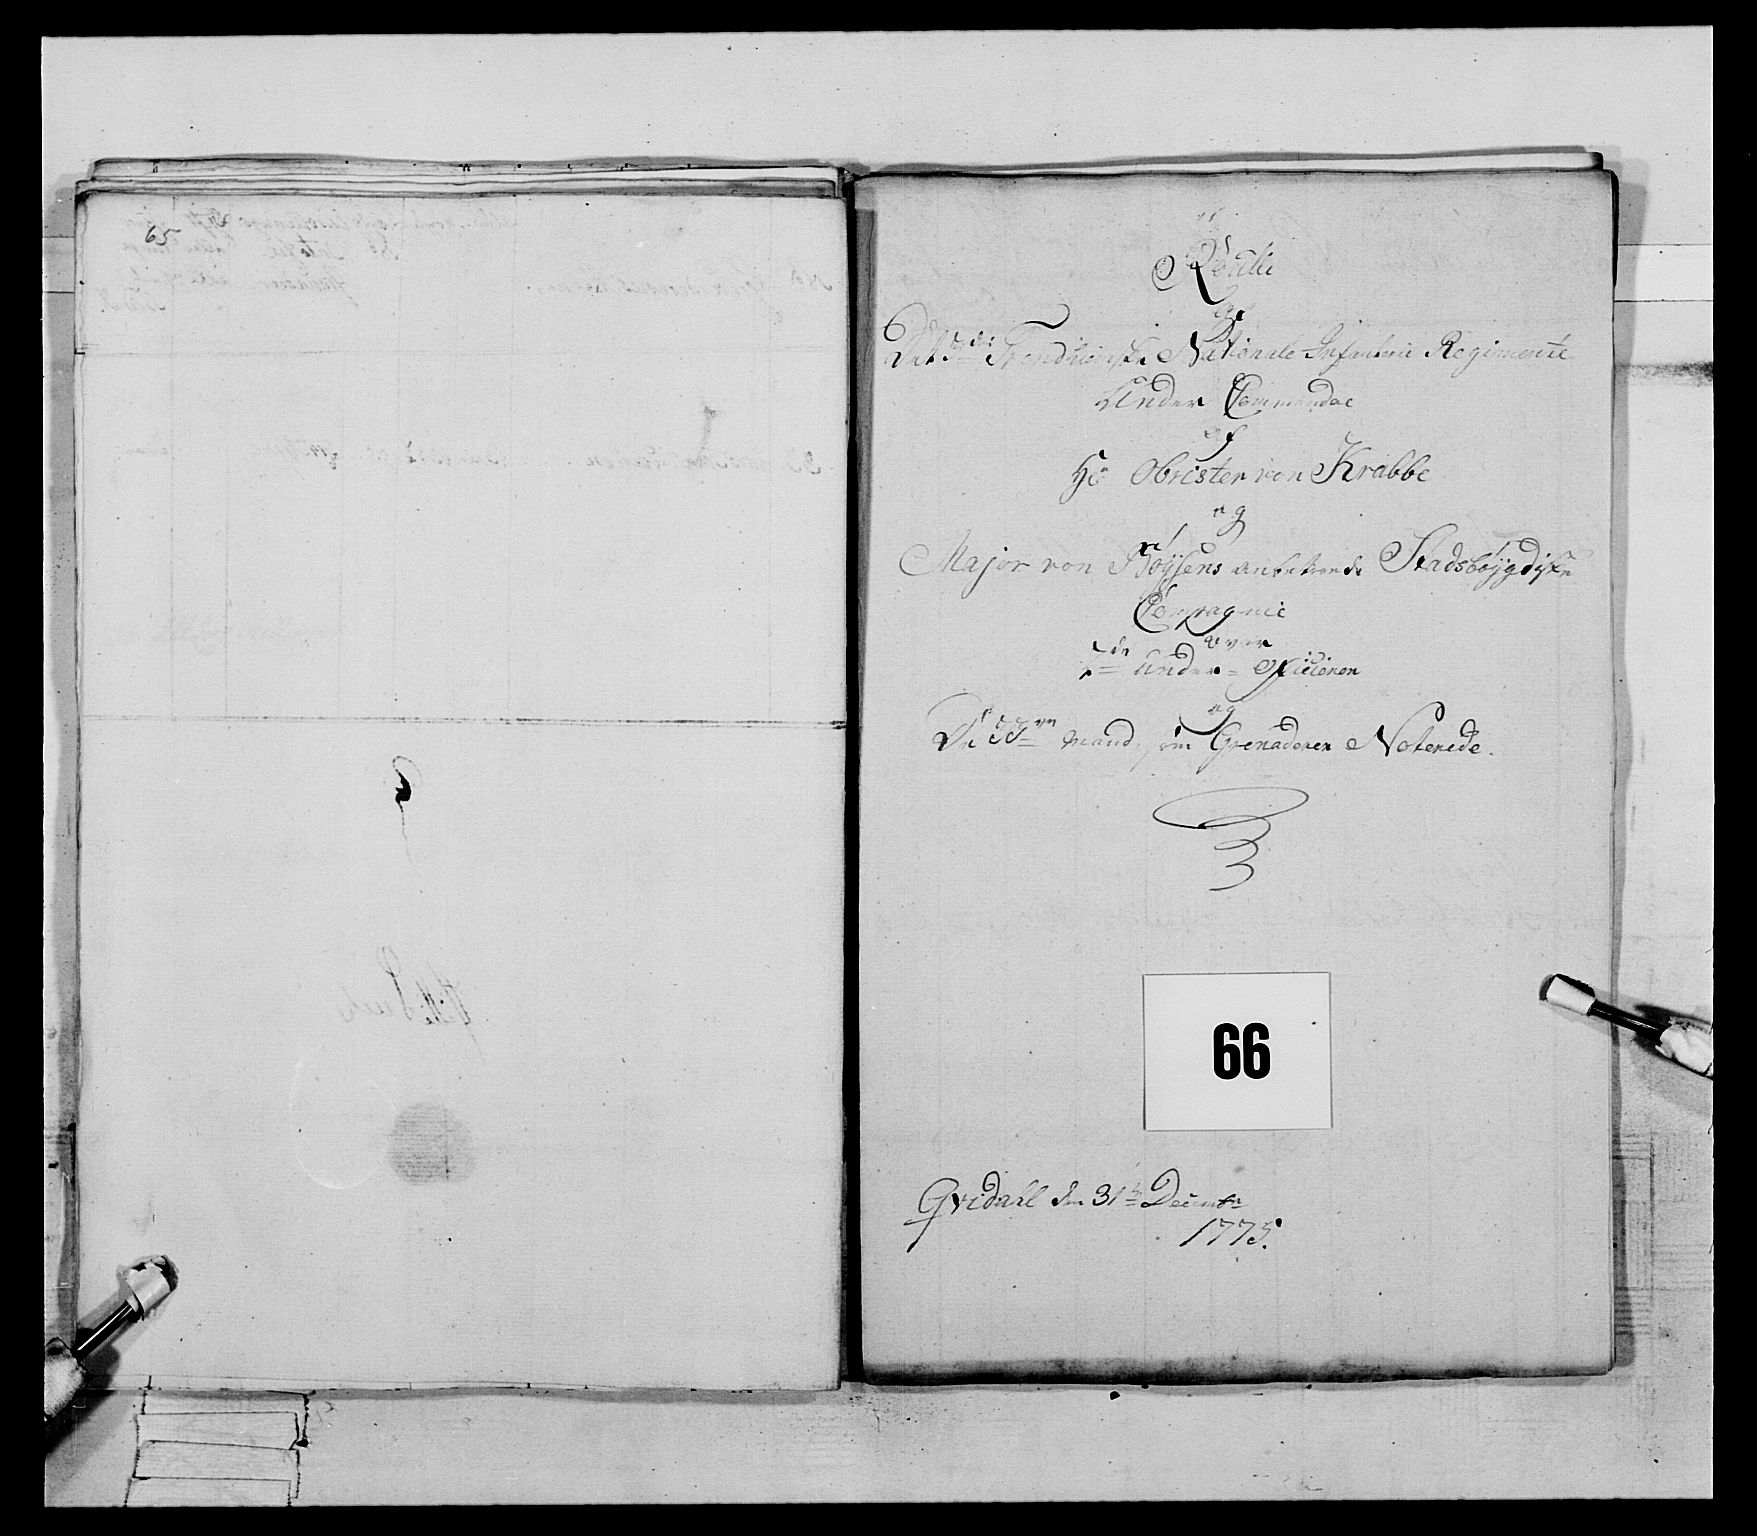 65
Rolle
af
Det 3de Trondhiemske Nationale Infanterie Regimente
Under Commando
af
Hr Obrister von Krabbe
og
Major von Røysens anbetroede Stadsbøygdiske
Compagnie
over
de Under-Officierer
og
De 33ve Mand, som Grenaderer Noterede.
66
Qvidaal den 31te Decembr
1775.